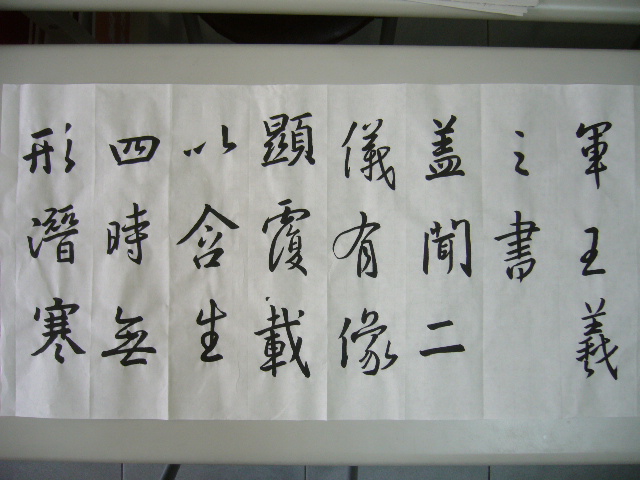 軍王羲
之書
盖聞二
儀有像
顯覆載
以含生
四時無
形潛寒